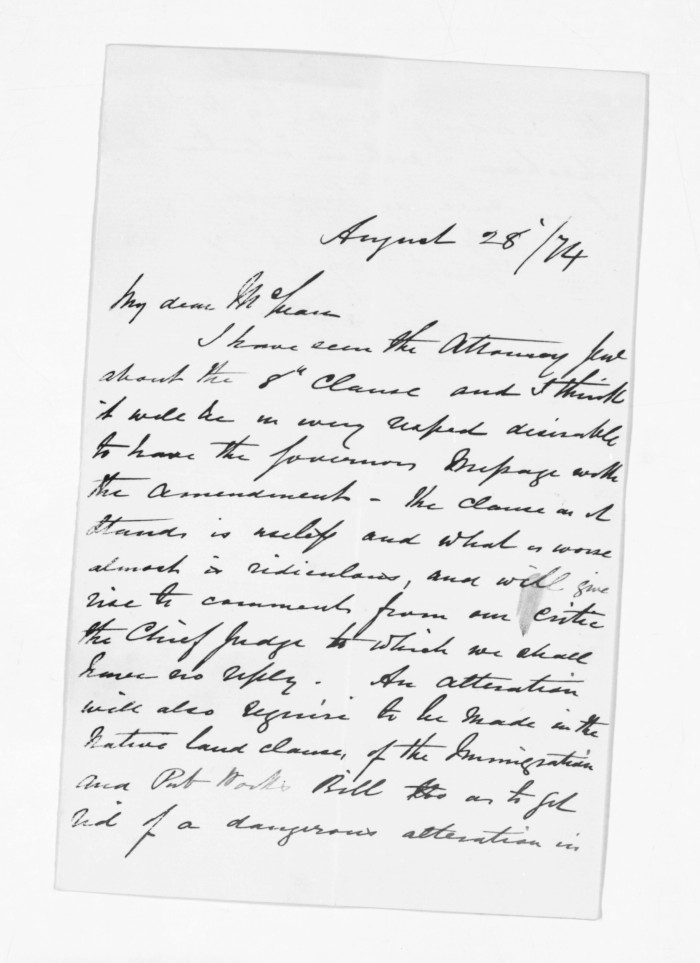 August 28/74
My dear McLean
I have seen the Attorney Genl
about the 8th Clause and I think
it will be in every respect desirable
to have the Governors Message with
the amendment - The clause as it
stands is useless and what is worse
almost is ridiculous, and will give
rise to comments from our critic
the Chief Judge to which we shall
have no reply. An alteration
will also require to be made in the
Native land clause, of the Immigration
and Pub Works Bill so as to get
rid of a dangerous alteration in